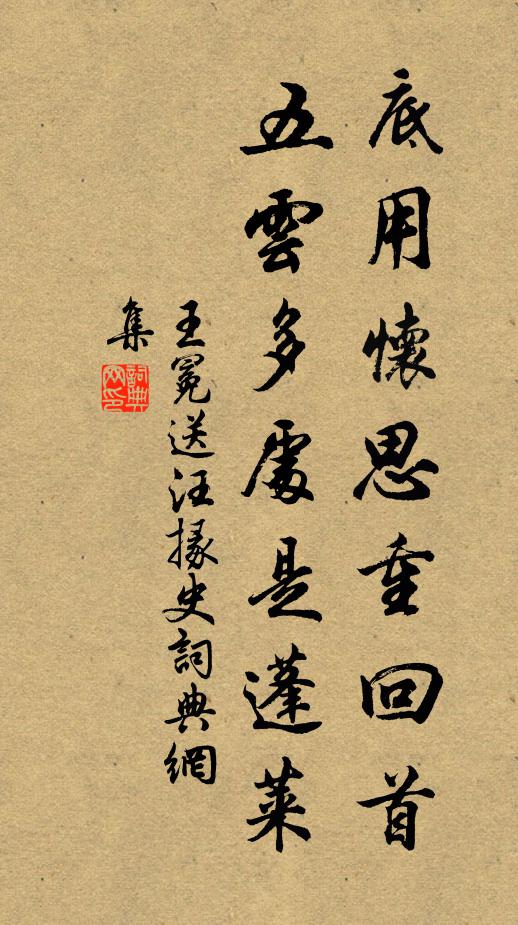 底用懷思重回首
五雲多處是蓬萊
王冕送汪掾史詞典網
集
詞典
网印